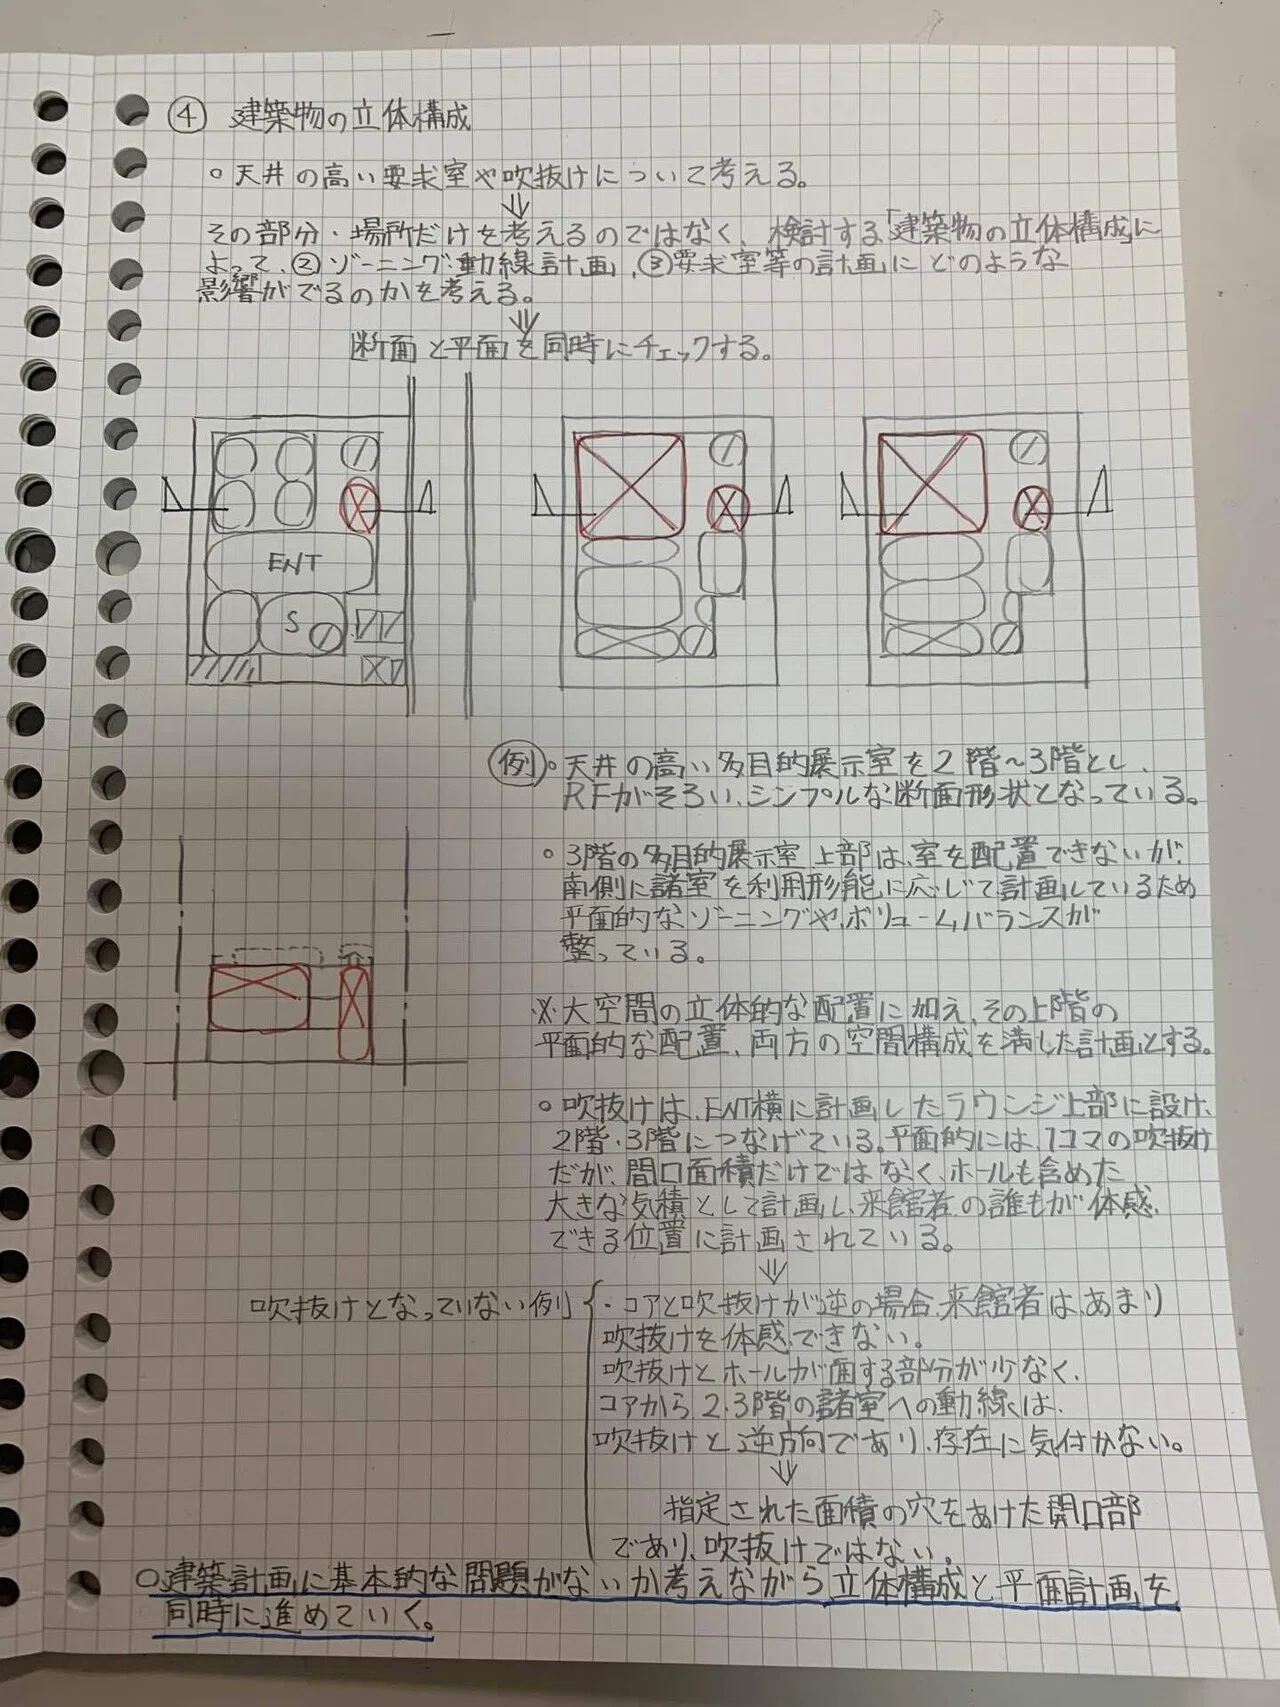 ④ 建築物の立体構成
○天井の高い要求室や吹抜けについて考える。
⇓
その部分・場所だけを考えるのではなく、検討する「建築物の立体構成」に
よって、②ゾーニング・動線計画、③要求室等の計画にどのような
影響がでるのかを考える。
⇓
断面と平面を同時にチェックする。
ENT
S
例 ○天井の高い多目的展示室を2階～3階とし、
RFがそろい、シンプルな断面形状となっている。
○3階の多目的展示室上部は、室を配置できないが、
南側に諸室を利用形態に応じて計画しているため
平面的なゾーニングや、ボリュームバランスが
整っている。
※大空間の立体的な配置に加え、その上階の
平面的な配置、両方の空間構成を満した計画とする。
○吹抜けは、ENT横に計画したラウンジ上部に設け、
2階・3階につなげている。平面的には、1コマの吹抜け
だが、開口面積だけではなく、ホールも含めた
大きな気積として計画し、来館者の誰もが体感
できる位置に計画されている。
⇓
吹抜けとなっていない例
・コアと吹抜けが逆の場合、来館者は、あまり
吹抜けを体感できない。
吹抜けとホールが面する部分が少なく、
コアから2.3階の諸室への動線は、
吹抜けと逆方向であり、存在に気付かない。
⇓
指定された面積の穴をあけた開口部
であり、吹抜けではない。
○建築計画に基本的な問題がないか考えながら立体構成と平面計画を
同時に進めていく。